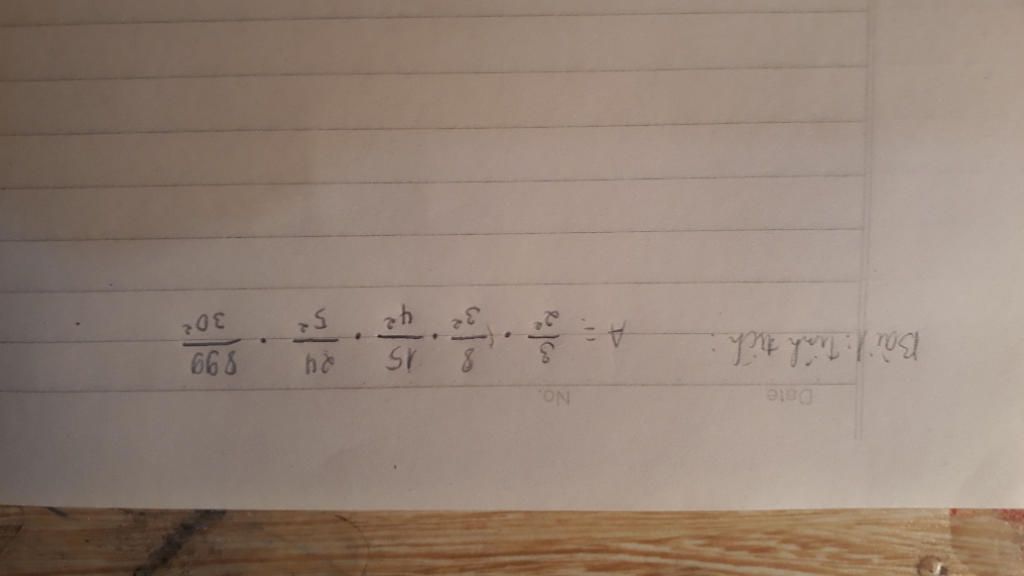 Date No.
Bài 1: tính tích:
A = 3/2² · 8/3² · 15/4² · 24/5² · 899/30²